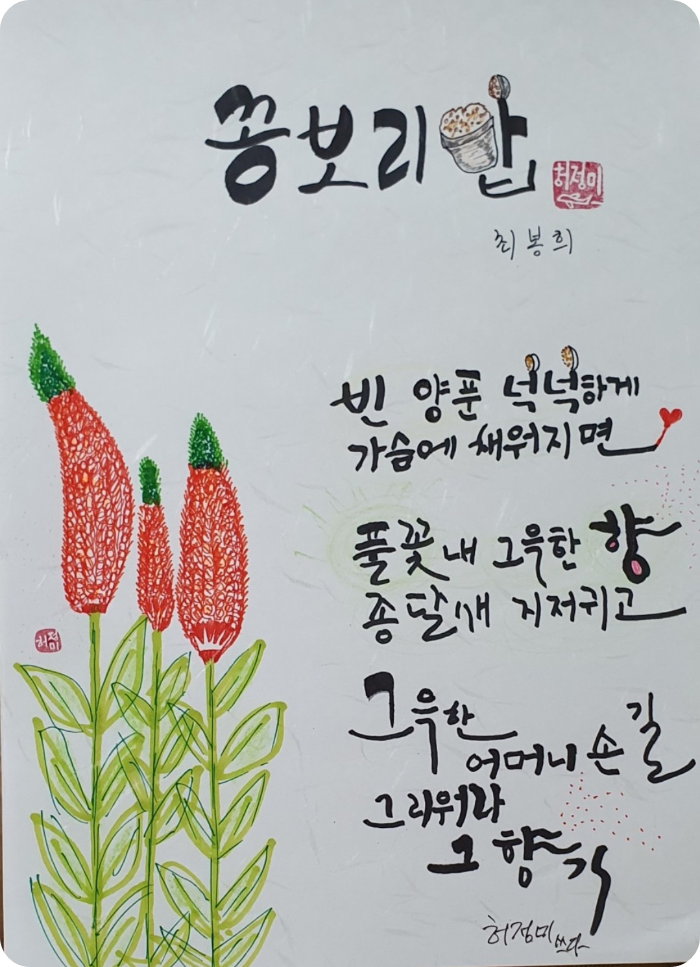 꽁보리밥
허정미
최봉희
빈 양푼 넉넉하게
가슴에 채워지면
풀꽃내 그윽한 향
종달새 지저귀고
허정미
그윽한
어머니 손길
그리워라
그 향기
허정미 쓰다